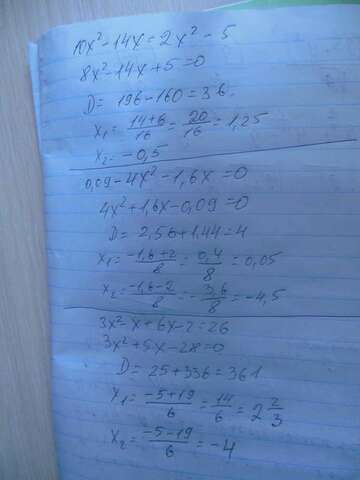 10x² - 14x = 2x² - 5
8x² - 14x + 5 = 0
D = 196 - 160 = 36
x₁ = (14+6)/16 = 20/16 = 1,25
x₂ = -0,5
0,09 - 4x² - 1,6x = 0
4x² + 1,6x - 0,09 = 0
D = 2,56 + 1,44 = 4
x₁ = (-1,6+2)/8 = 0,4/8 = 0,05
x₂ = (-1,6-2)/8 = -3,6/8 = -4,5
3x² - x + 6x - 2 = 26
3x² + 5x - 28 = 0
D = 25 + 336 = 361
x₁ = (-5+19)/6 = 14/6 = 2 2/3
x₂ = (-5-19)/6 = -4